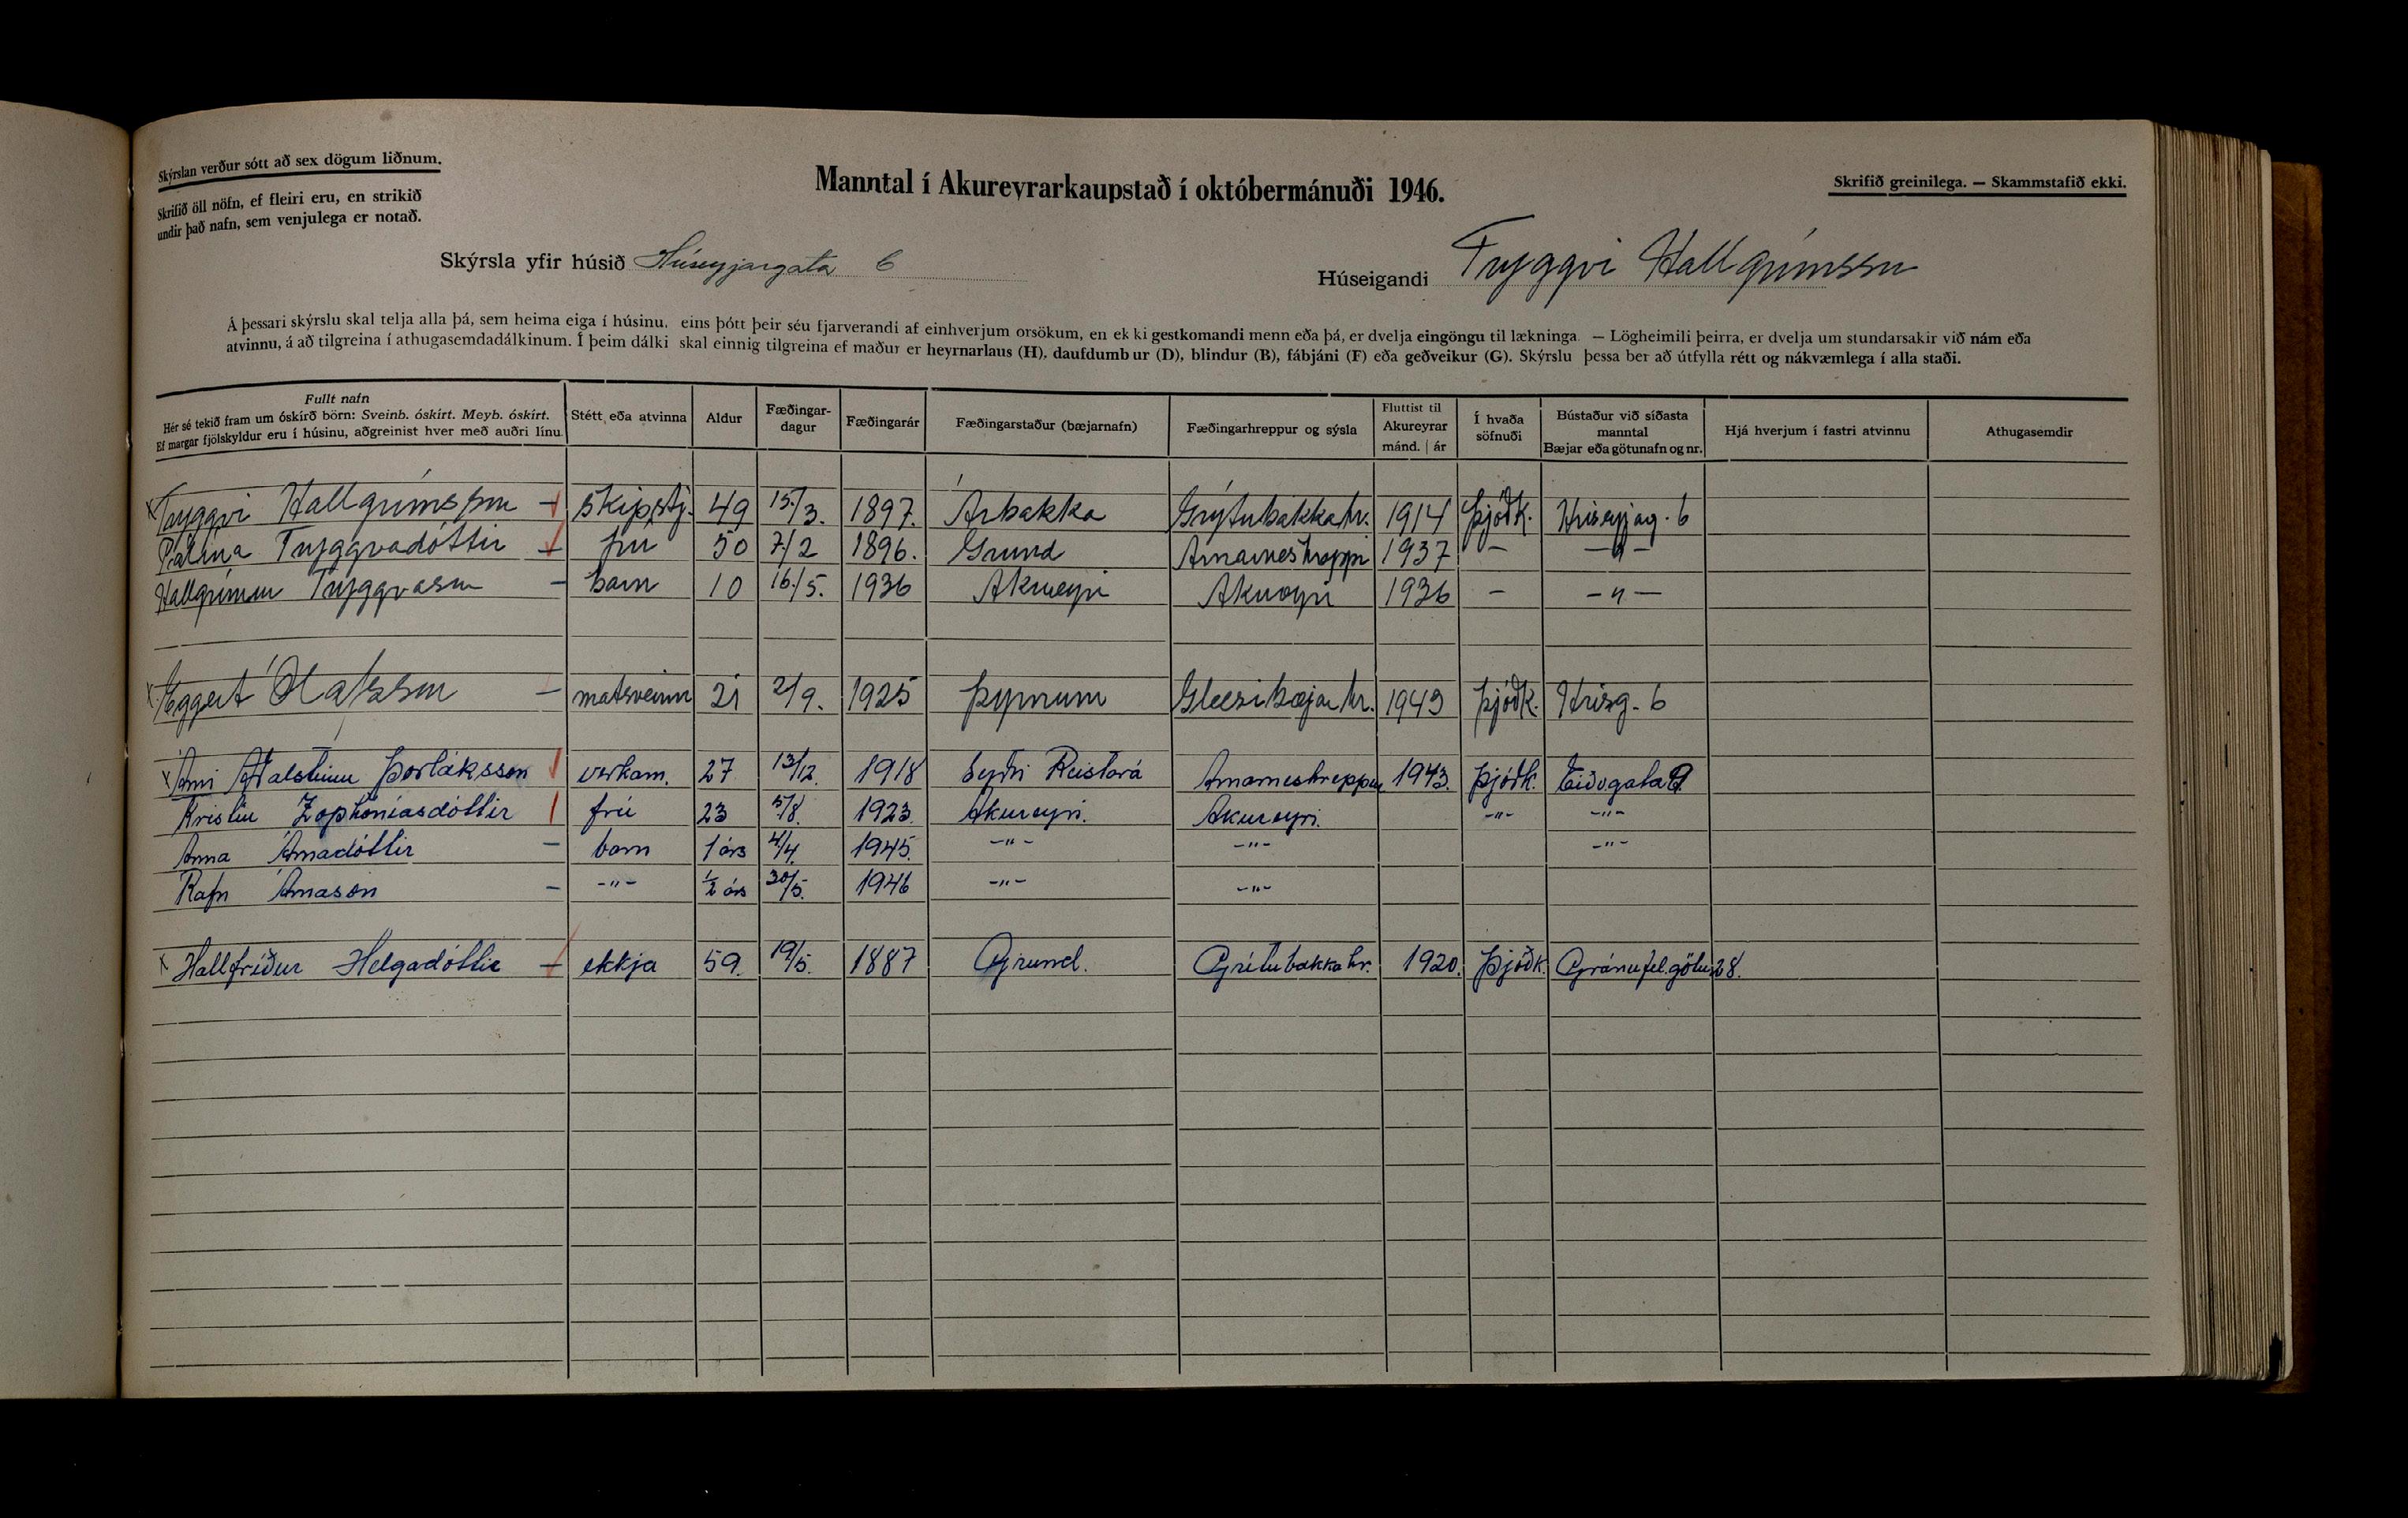 Skýrslan verður sótt að sex dögum liðnum.
Skrifið öll nöfn, ef fleiri eru, en strikið
undir það nafn, sem venjulega er notað.
Manntal í Akureyrarkaupstað í októbermánuði 1946.
Skrifið greinilega. — Skammstafið ekki.
Skýrsla yfir húsið Hríseyjargata 6
Húseigandi Tryggvi Hallgrímsson
Á þessari skýrslu skal telja alla þá, sem heima eiga í húsinu, eins þótt þeir séu fjarverandi af einhverjum orsökum, en ekki gestkomandi menn eða þá, er dvelja eingöngu til lækninga. — Lögheimili þeirra, er dvelja um stundarsakir við nám eða
atvinnu, á að tilgreina í athugasemdadálkinum. Í þeim dálki skal einnig tilgreina ef maður er heyrnarlaus (H), daufdumbur (D), blindur (B), fábjáni (F) eða geðveikur (G). Skýrslu þessa ber að útfylla rétt og nákvæmlega í alla staði.
Fullt nafn Hér sé tekið fram um óskírð börn: Sveinb. óskírt. Meyb. óskírt. Ef margar fjölskyldur eru í húsinu, aðgreinist hver með auðri línu. Stétt eða atvinna Aldur Fæðingar-dagur Fæðingarár Fæðingarstaður (bæjarnafn) Fæðingarhreppur og sýsla Fluttist til Akureyrar mánd. | ár Í hvaða söfnuði Bústaður við síðasta manntal Bæjar eða götunafn og nr. Hjá hverjum í fastri atvinnu Athugasemdir
x Tryggvi Hallgrímsson — skipstj. 49 15/3. 1897. Árbakka Grýtubakkahr. 1914 Þjóðk. Hríseyjag. 6
Pálína Tryggvadóttir — frú 50 7/2 1896. Grund Arnarneshreppi 1937 — — " —
Hallgrímur Tryggvason — barn 10 16/5. 1936 Akureyri Akureyri 1936 — — " —
x Eggert Ólafsson — matsveinn 21 2/9. 1925 Þyrnum Glæsibæjarhr. 1943 Þjóðk. Hrísg. 6
x Árni Aðalsteinn Þorláksson verkam. 27 13/12. 1918 Syðri Reistará Arnarneshreppur 1943. Þjóðk. Eiðsgata 9
Kristín Zophoníasdóttir frú 23 5/8. 1923. Akureyri. Akureyri. — " — — " —
Anna Árnadóttir — barn 1 árs 4/4. 1945. — " — — " — — " —
Rafn Árnason — — " — ½ árs 30/5. 1946 — " — — " —
x Hallfríður Helgadóttir — ekkja 59. 19/5. 1887 Grund. Grítubakkahr. 1920. Þjóðk. Gránufél.götu 28.